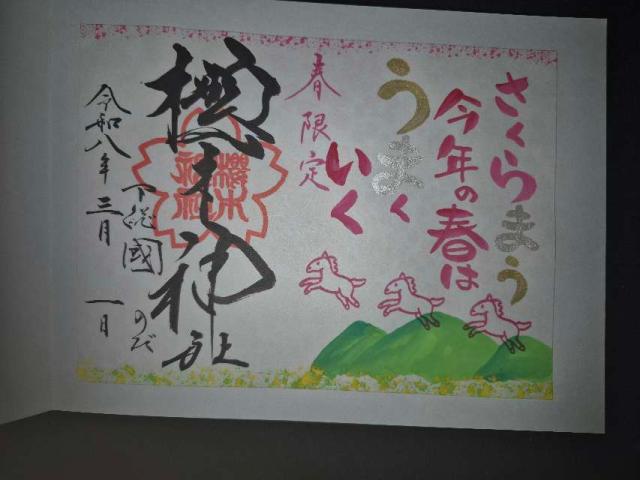 さくらまう
今年の春は
うまく
いく
春限定
櫻木神社
下総國 のだ
令和八年三月一日